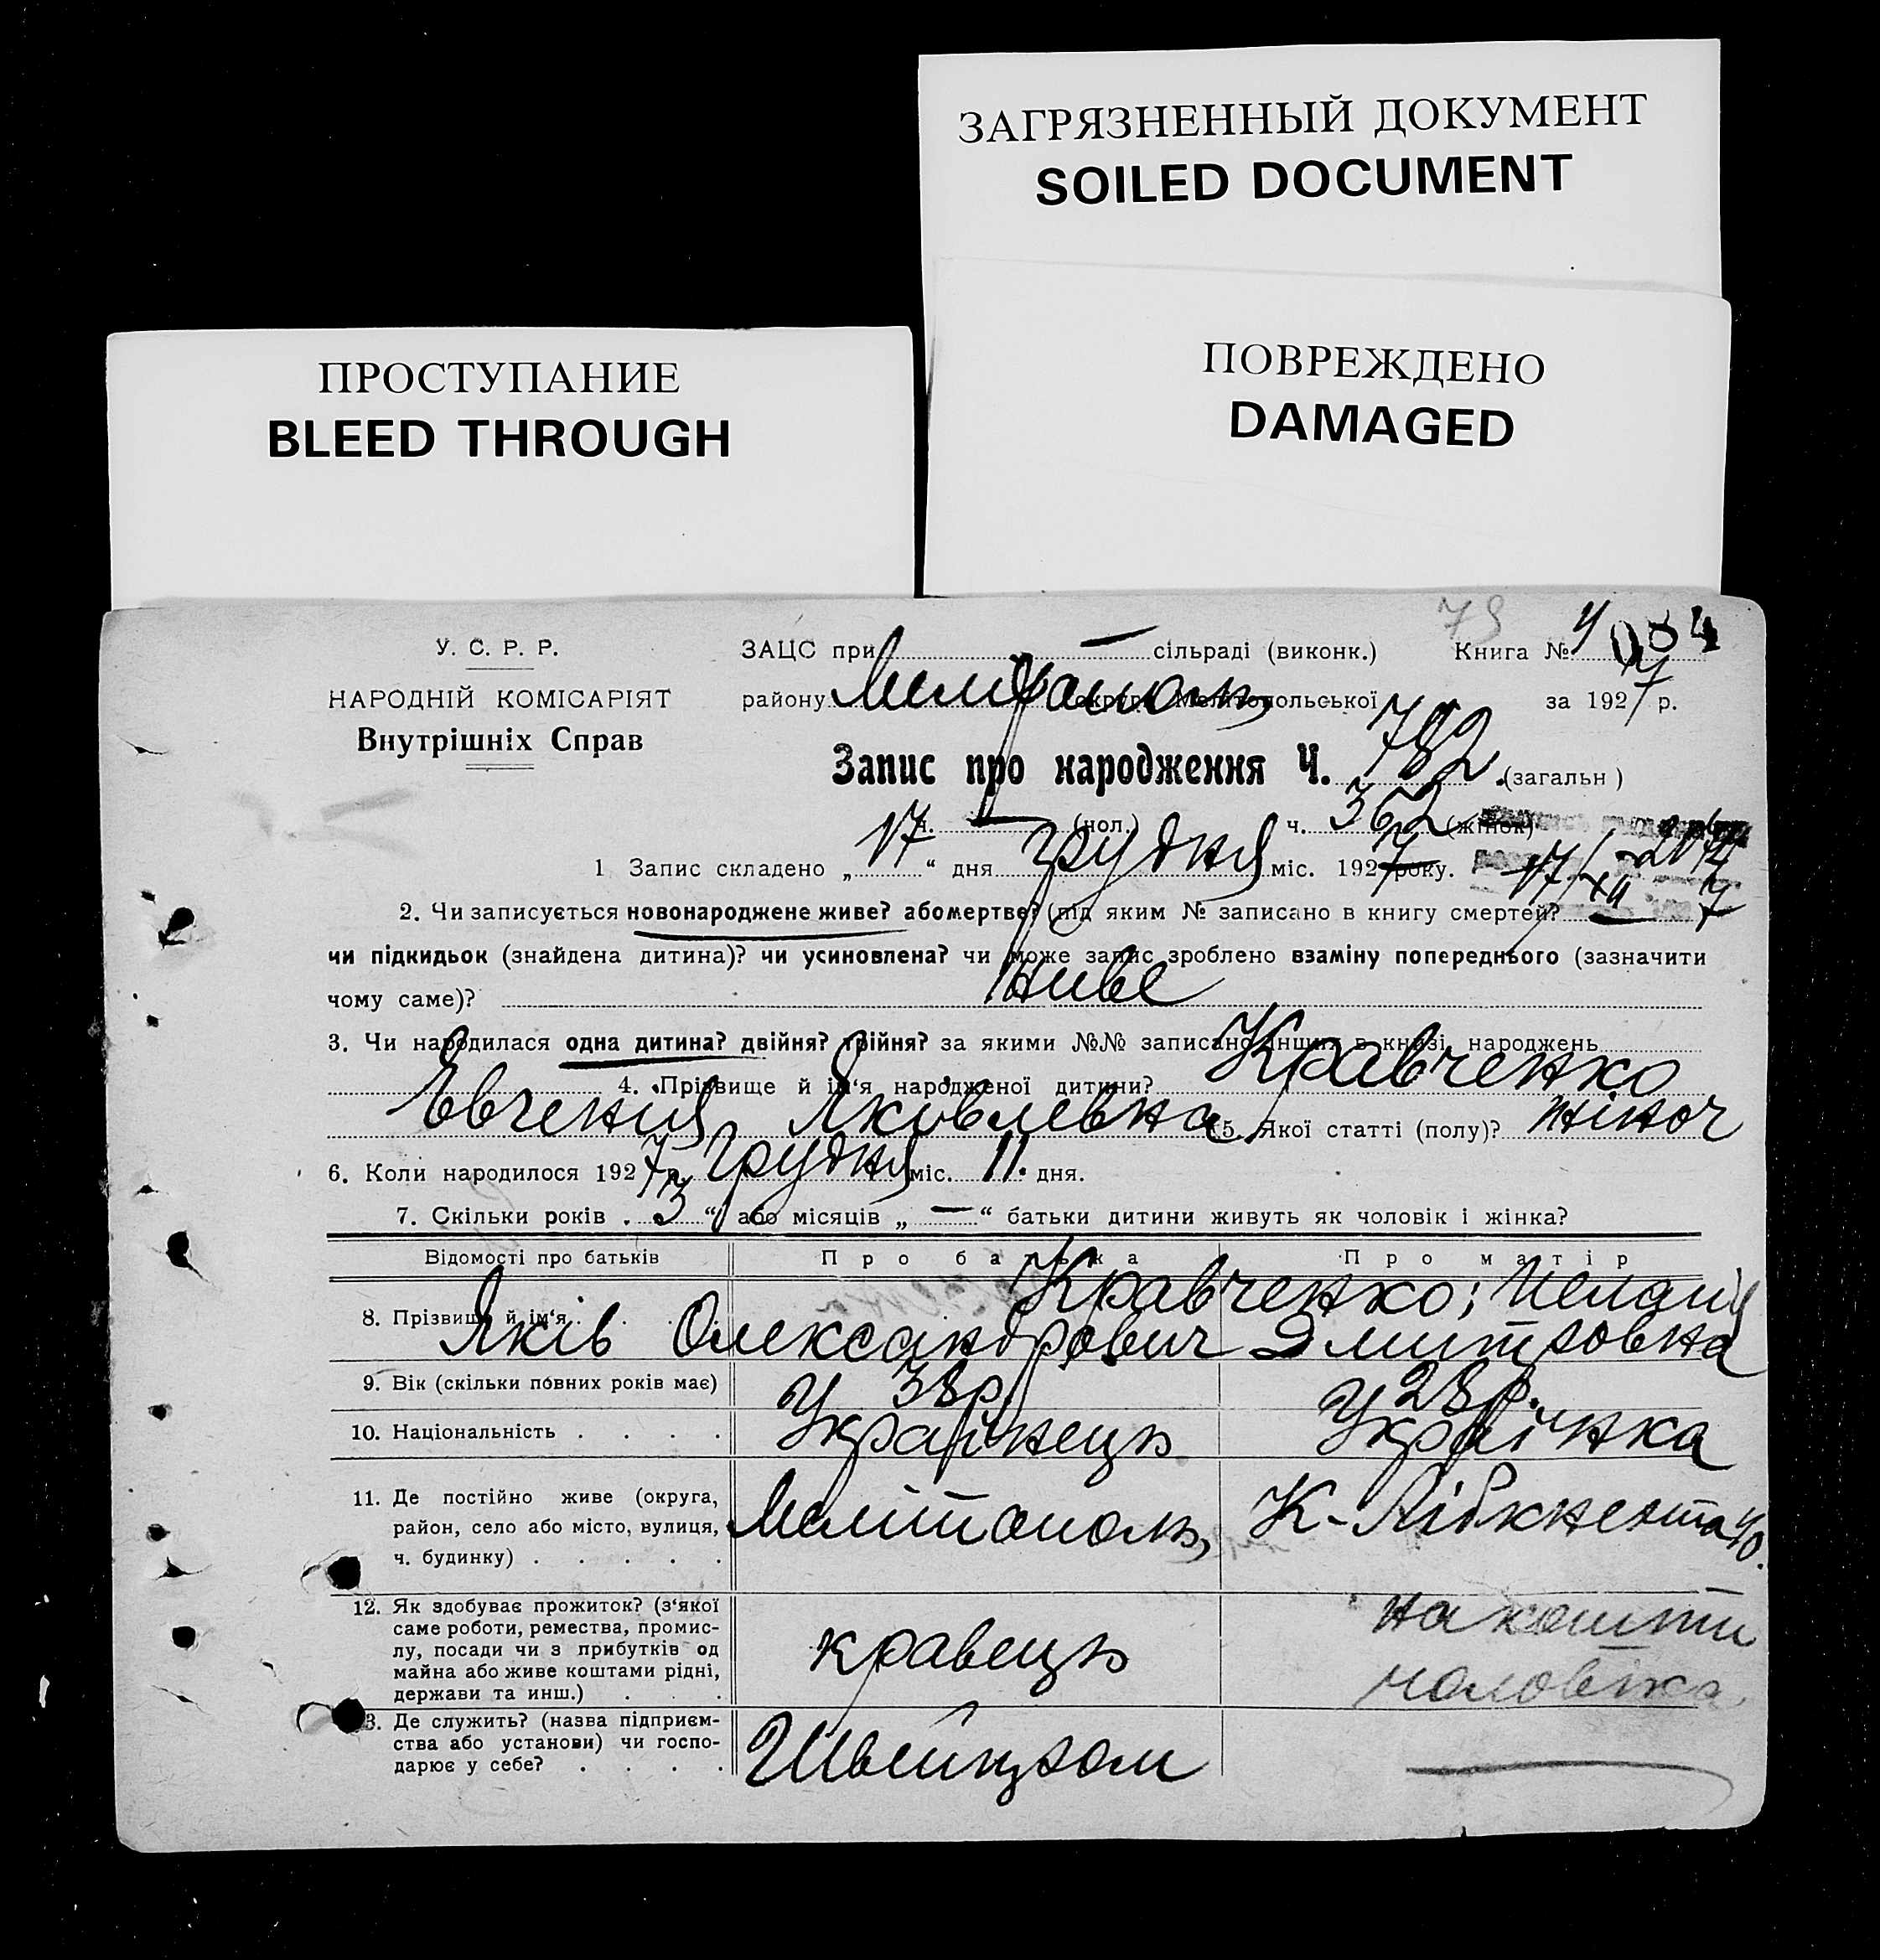 ЗАГРЯЗНЕННЫЙ ДОКУМЕНТ
SOILED DOCUMENT
ПОВРЕЖДЕНО
DAMAGED
ПРОСТУПАНИЕ
BLEED THROUGH
У. С. Р. Р.
НАРОДНІЙ КОМІСАРІЯТ
Внутрішніх Справ
ЗАЦС при — сільраді (виконк.) Книга № 4
району Мелітополь округи Мелітопольської за 1927 р.
Запис про народження Ч. 782 (загальн)
ч. — (чол.) ч. 362 (жінок)
1 Запис складено „17“ дня Грудня міс. 1927 року. 17/XII
2. Чи записується новонароджене живе? або мертве? (під яким № записано в книгу смертей?
чи підкидьок (знайдена дитина)? чи усиновлена? чи може запис зроблено взаміну попереднього (зазначити
чому саме)? Живе
3. Чи народилася одна дитина? двійня? трійня? за якими №№ записано інших в книзі народжень
4. Прізвище й ім'я народженої дитини? Кравченко
Євгения Яковлевна 5. Якої статті (полу)? жіноч
6. Коли народилося 1927 р. Грудня міс. 11. дня.
7. Скільки років „3“ або місяців „—“ батьки дитини живуть як чоловік і жінка?
Відомості про батьків Про батька Про матір
8. Прізвище й ім'я Кравченко; Меланія
Яків Олександрович Дмитровна
9. Вік (скільки повних років має) 38 р. 28 р.
10. Національність Українець Українка
11. Де постійно живе (округа,
район, село або місто, вулиця,
ч. будинку) Мелітополь, К-Лібкнехта 40.
12. Як здобуває прожиток? (з'якої
саме роботи, ремества, промис-
лу, посади чи з прибутків од
майна або живе коштами рідні,
держави та инш.) кравець на кошти
чоловіка
13. Де служить? (назва підприєм-
ства або установи) чи госпо-
дарює у себе? Швейпром —